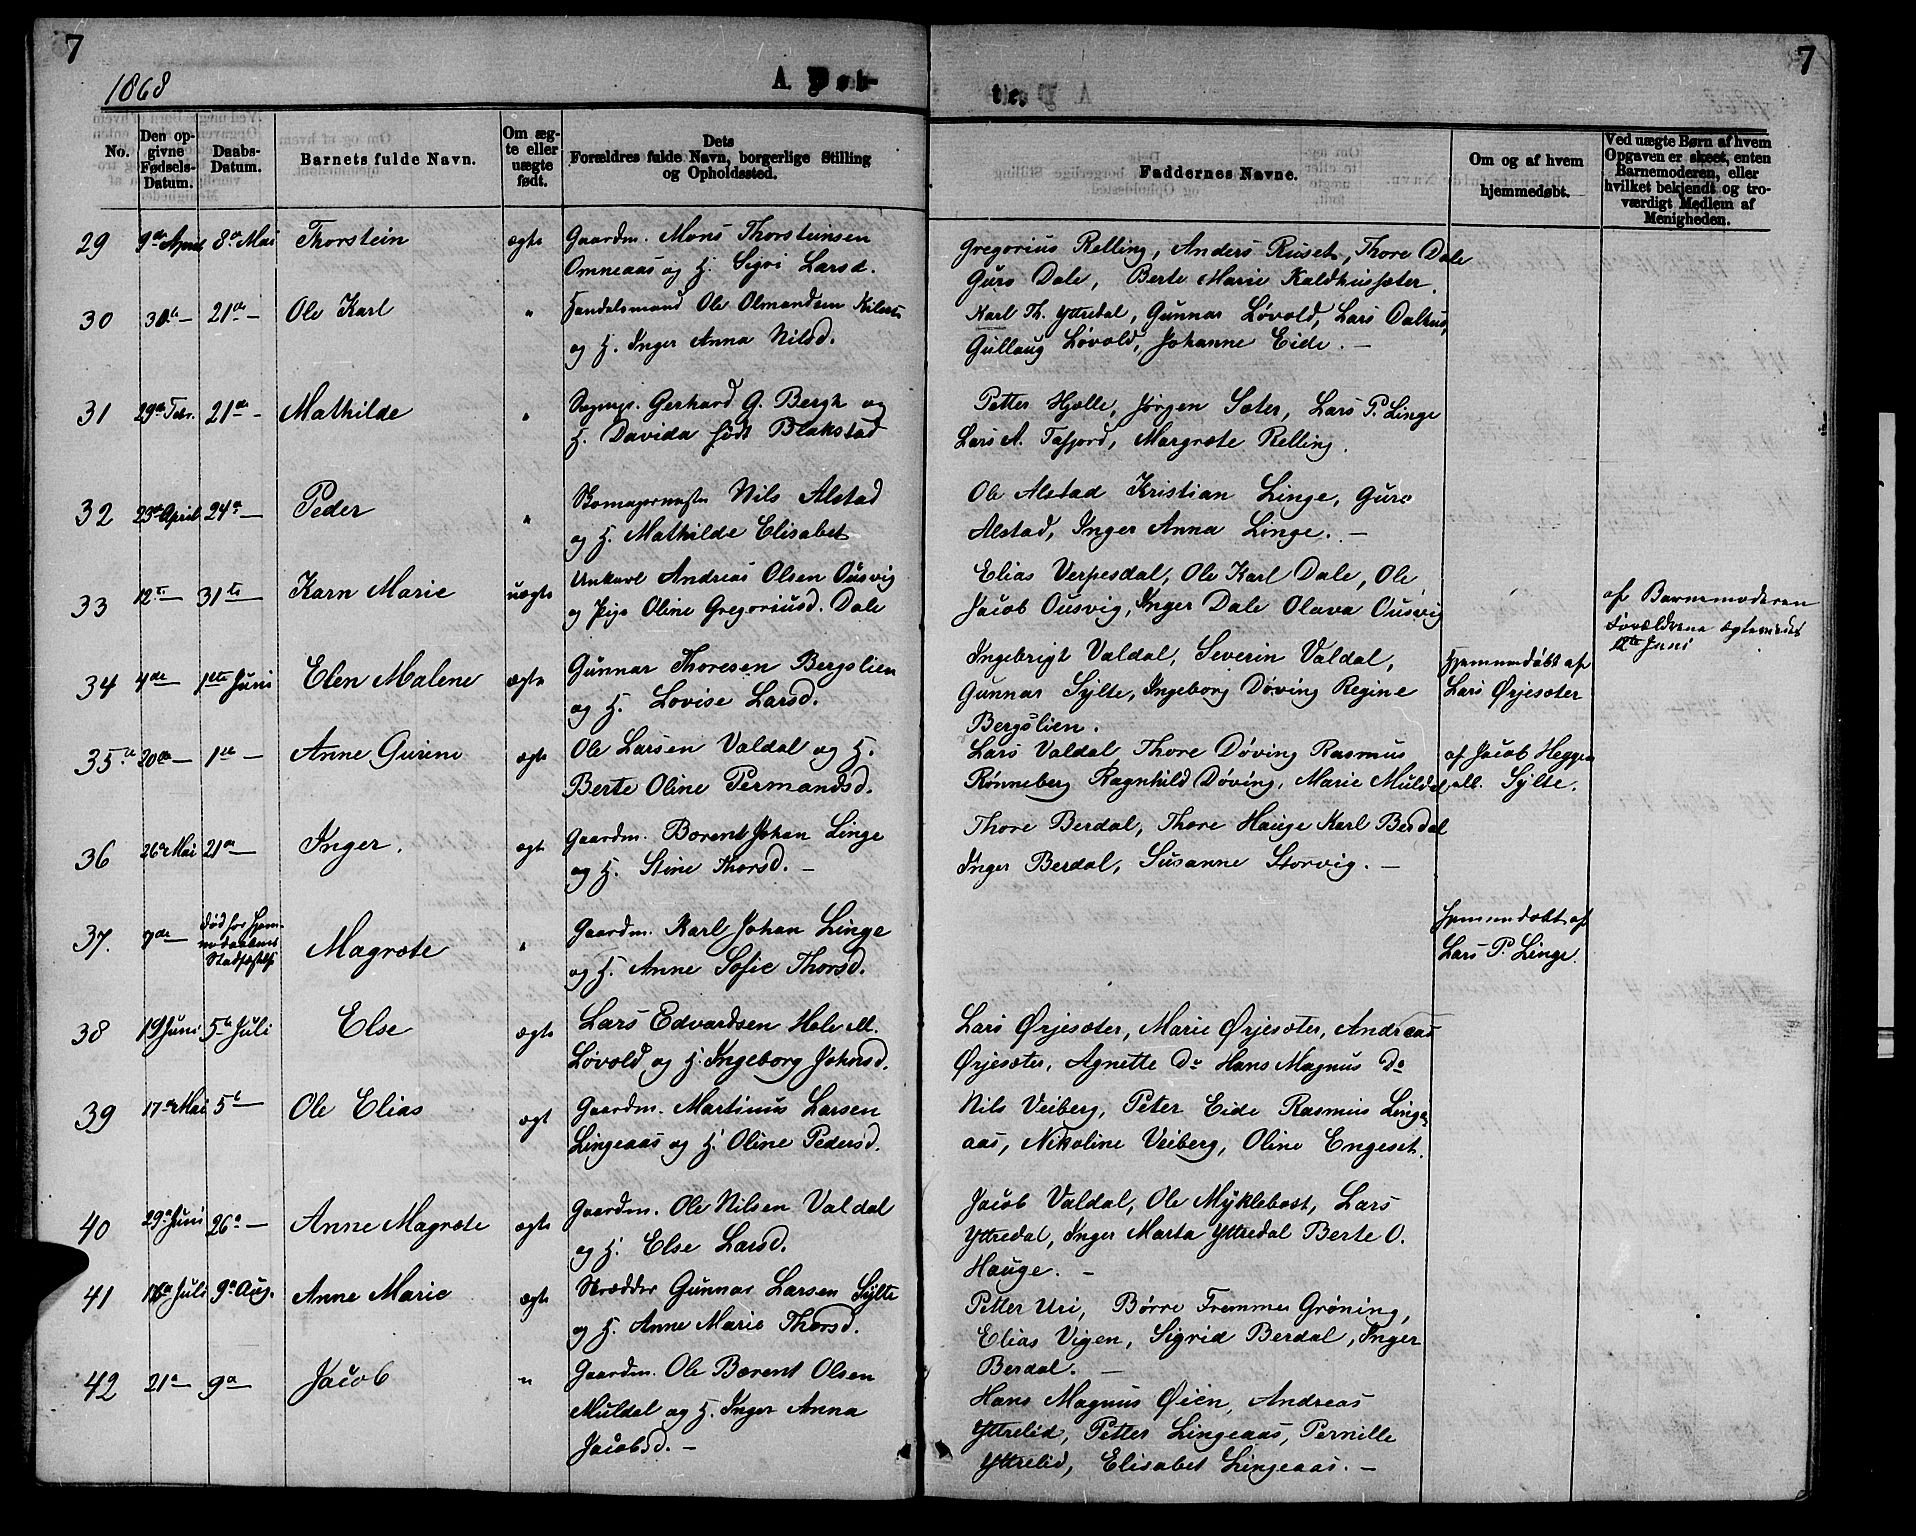 7
7
1868
A. Døb-
te.
No.
Den op-
givne
Fødsels-
Datum.
Daabs-
Datum.
Barnets fulde Navn.
Om æg-
te eller
uægte
født.
Dets
Forældres fulde Navn, borgerlige Stilling
og Opholdssted.
Faddernes Navne.
Om og af hvem
hjemmedøbt.
Ved uægte Børn af hvem
Opgaven er skeet, enten
Barnemoderen, eller
hvilket bekjendt og tro-
værdigt Medlem af
Menigheden.
29 9de April 8de Mai Thorstein ægte Gaardm. Mons Thorsteinsen
Omneaas og H. Sigri Larsd.
Gregorius Relling, Anders Ruset, Thore Dale
Guro Dale, Berte Marie Kaldhussæter.
30 21de — Ole Karl " Handelsmand Ole Olmandsen
og H. Inger Anna Nilsd.
Karl Th. Yttredal, Gunnar Løvold, Lars Dalhus,
Gullaug Løvold, Johanne Eide. —
31 29de Febr. 21de — Mathilde " Gerhard G. Bergh og
H. Davida født Blakstad
Petter Hjelle, Jørgen Sæter, Lars P. Linge
Lars A. Tafjord, Margrete Relling.
32 23de April 24de — Peder " Skomagermester Nils Alstad
og H. Mathilde Elisabet
Ole Alstad Kristian Linge, Guro
Alstad, Inger Anna Linge. —
33 12te — 31te — Karn Marie uægte Unkarl Andreas Olsen Ousvig
og Pige Oline Gregoriusd. Dale
Elias Verpesdal, Ole Karl Dale, Ole
Jacob Ousvig, Inger Dale Olava Ousvig
af Barnemoderen
Forældrene ægteviede
12te Juni
34 4de — 1ste Juni Elen Malene ægte Gunnar Thoresen Bergslien
og H. Lovise Larsd.
Ingebrigt Valdal, Severin Valdal,
Gunnar Sylte, Ingeborg Døving Regine
Bergslien.
Hjemmedøbt af
Lars Ørjesæter
35 20de — 1ste — Anne Gurine ægte Ole Larsen Valdal og H.
Berte Oline Permandsd.
Lars Valdal Thore Døving Rasmus
Rønneberg Ragnhild Døving, Marie Muldal
af Jacob Heggen
all. Sylte.
36 26de Mai 21de — Inger. ægte Gaardm. Berent Johan Linge
og H. Stine Thorsd. —
Thore Berdal, Thore Hauge Karl Berdal
Inger Berdal, Susanne Storvig. —
37. 7de — død før Hjem-
medaabens
Stadfæstelse
Magrete " Gaardm. Karl Johan Linge
og H. Anne Sofie Thorsd.
Hjemmedøbt af
Lars P. Linge.
38 19 Juni 5te Juli Else ægte Lars Edvardsen Hole M.
Løvold og H. Ingeborg Johnsd.
Lars Ørjesæter, Marie Ørjesæter, Andreas
Ørjesæter, Agnette Do Hans Magnus Do
39 17de Mai 5te — Ole Elias ægt Gaardm. Martinus Larsen
Lingeaas og H. Oline Pedersd.
Nils Veiberg, Peter Eide Rasmus Linge-
aas, Nikoline Veiberg, Oline Engeset.
40 29de Juni 26de — Anne Magrete ægte Gaardm. Ole Nilsen Valdal
og H. Else Larsd.
Jacob Valdal, Ole Myklebost, Lars
Yttredal, Inger Marta Yttredal Berte O.
Hauge. —
41 Juli 9de Aug. Anne Marie ægte Skrædder Gunnar Larsen Sylte
og H. Anne Marie Thorsd.
Petter Uri, Børre Fremmer Grøning,
Elias Vigen, Sigrid Berdal, Inger
Berdal. —
42 21de — 9de — Jacob " Gaardm. Ole Berent Olsen
Muldal og H. Inger Anna
Jacobsd. —
Hans Magnus Øien, Andreas
Yttrelid, Petter Lingeaas, Pernille
Yttrelid, Elisabet Lingeaas. —